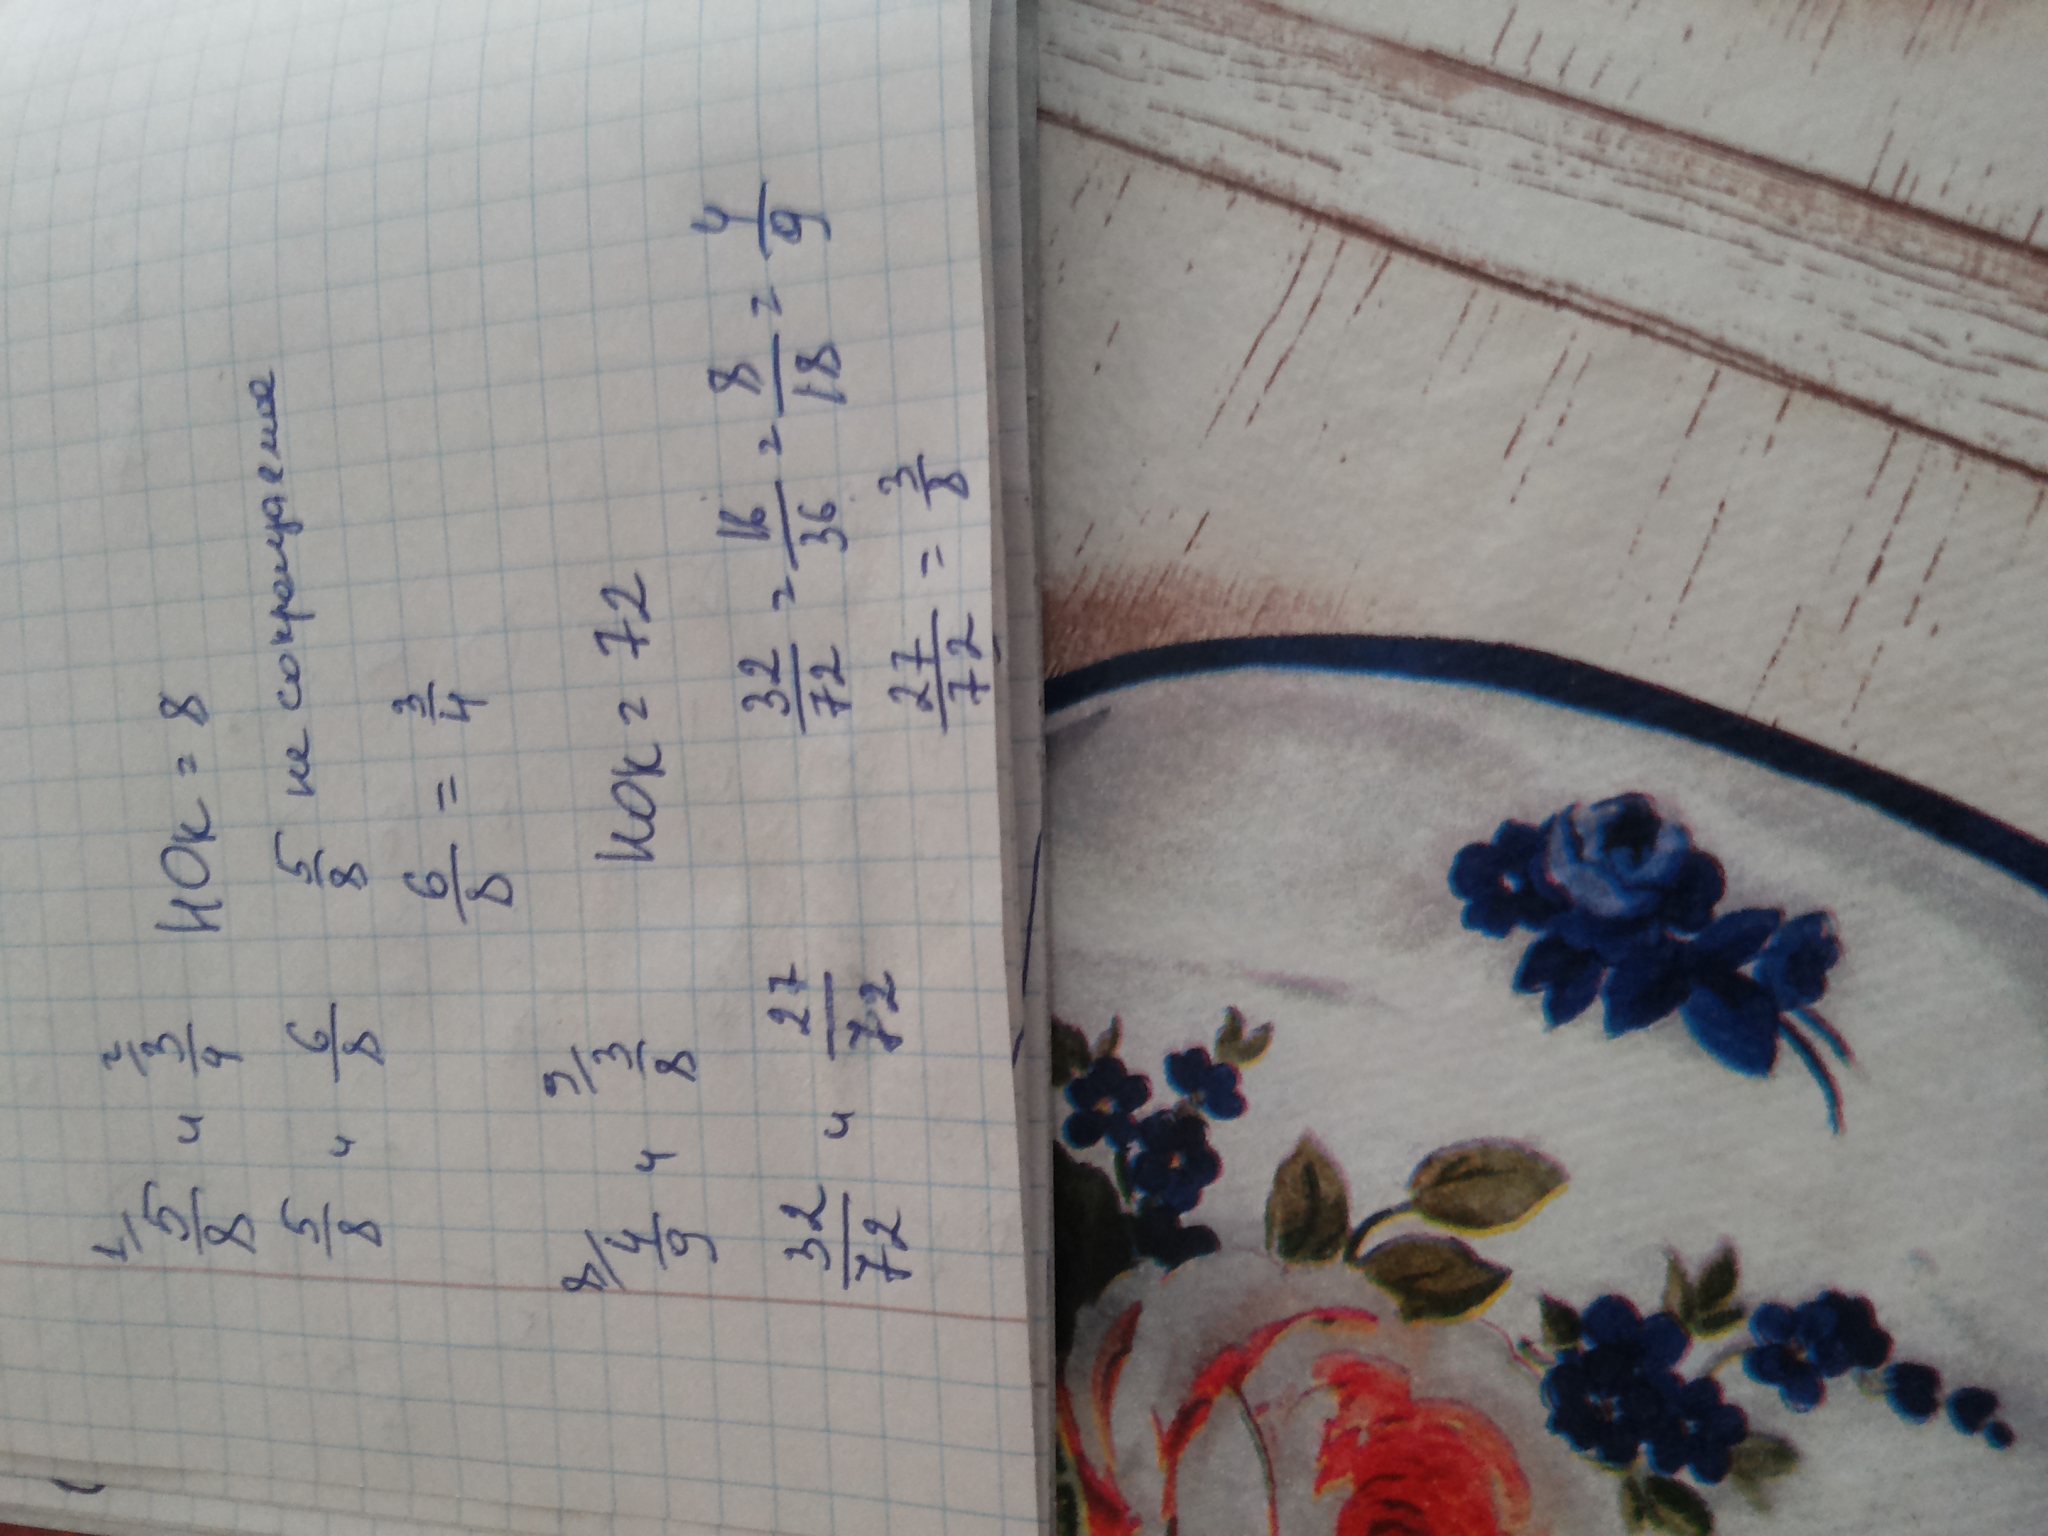 1/ 5/8 и 2/ 3/4 НОК = 8
5/8 и 6/8 5/8 не сокращаема
6/8 = 3/4
8/ 4/9 и 9/ 3/8 НОК = 72
32/72 и 27/72 32/72 = 16/36 = 8/18 = 4/9
27/72 = 3/8